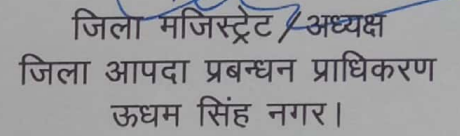 जिला मजिस्ट्रेट/अध्यक्ष
जिला आपदा प्रबन्धन प्राधिकरण
ऊधम सिंह नगर।